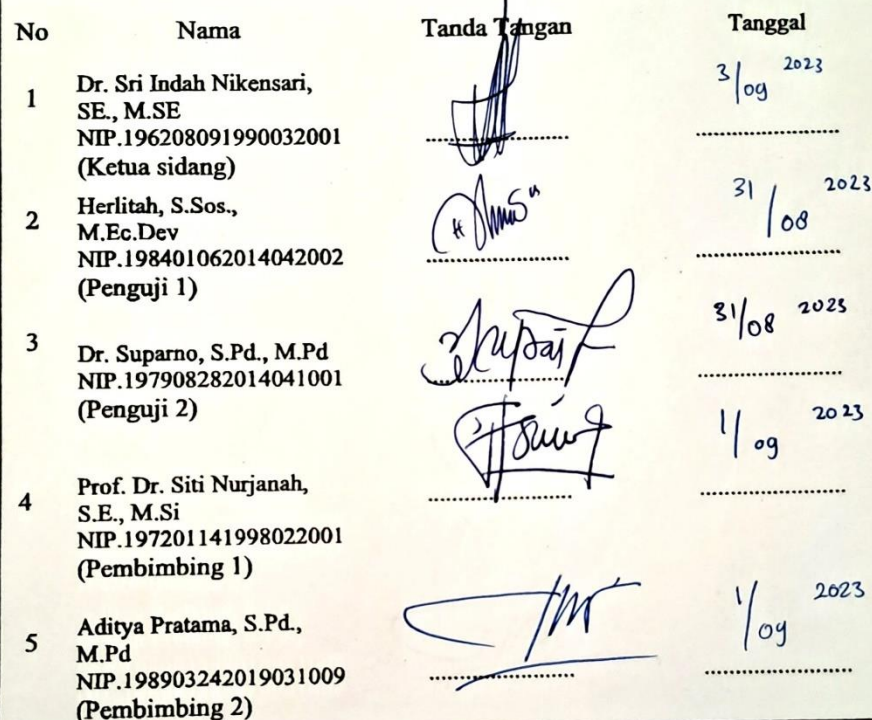 No Nama Tanda Tangan Tanggal
1 Dr. Sri Indah Nikensari,
SE., M.SE
NIP.196208091990032001
(Ketua sidang)
3/09 2023
2 Herlitah, S.Sos.,
M.Ec.Dev
NIP.198401062014042002
(Penguji 1)
31/08 2023
3 Dr. Suparno, S.Pd., M.Pd
NIP.197908282014041001
(Penguji 2)
31/08 2023
4 Prof. Dr. Siti Nurjanah,
S.E., M.Si
NIP.197201141998022001
(Pembimbing 1)
1/09 2023
5 Aditya Pratama, S.Pd.,
M.Pd
NIP.198903242019031009
(Pembimbing 2)
1/09 2023